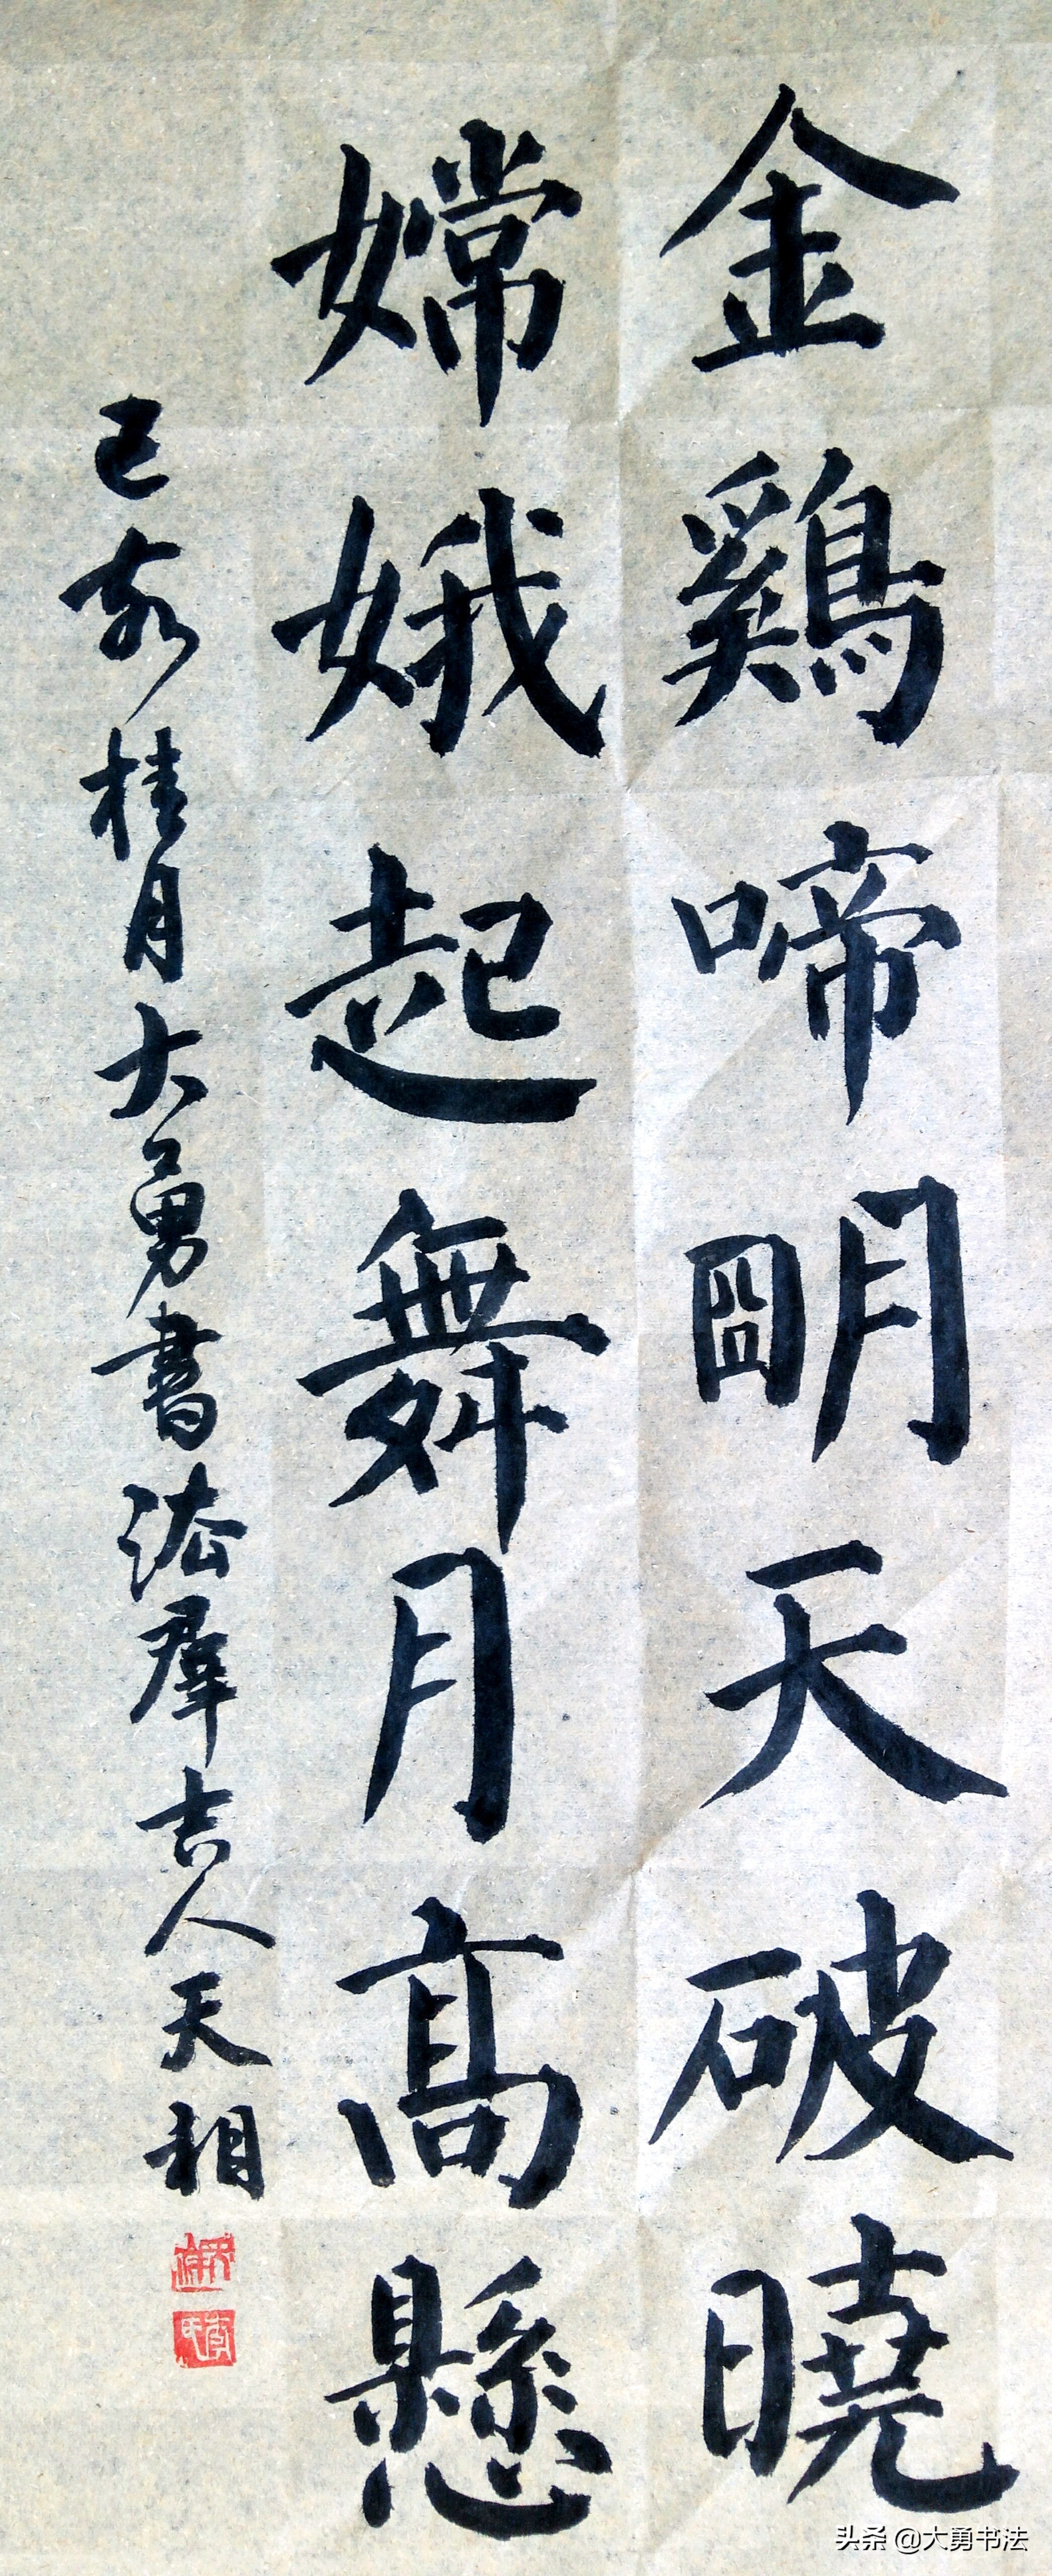 金鷄啼明天破曉
嫦娥起舞月高懸
己亥桂月大勇書法群吉人天相
头条 @大勇书法